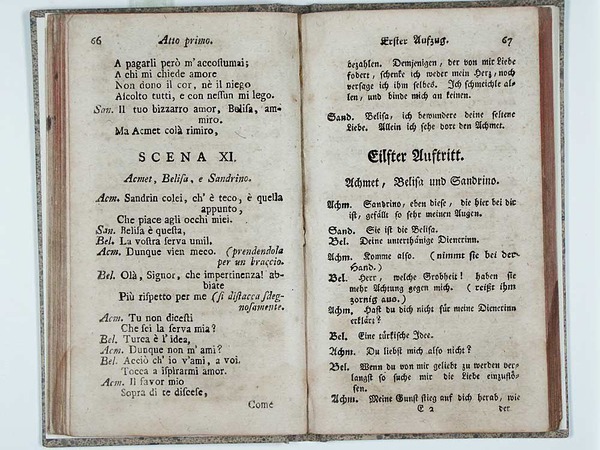 66
Atto primo.
A pagarli però m'accoſtumai;
A chi mi chiede amore
Non dono il cor, nè il niego
Aſcolto tutti, e con neſſun mi lego.
San. Il tuo bizzarro amor, Beliſa, am-
miro.
Ma Acmet colà rimiro,
SCENA XI.
Acmet, Beliſa, e Sandrino.
Acm. Sandrin colei, ch'è teco, è quella
appunto,
Che piace agli occhi miei.
San. Beliſa è queſta,
Bel. La voſtra ſerva umil.
Acm. Dunque vien meco. (prendendola
per un braccio.
Bel. Olà, Signor, che impertinenza! ab-
biate
Più riſpetto per me (ſi diſtacca ſdeg-
noſamente.
Acm. Tu non diceſti
Che ſei la ſerva mia?
Bel. Turca è l'idea,
Acm. Dunque non m'ami?
Bel. Acciò ch'io v'ami, a voi.
Tocca a iſpirarmi amor.
Acm. Il favor mio
Sopra di te diſceſe,
Come
Erſter Aufzug.
67
bezahlen. Demjenigen, der von mir Liebe
fodert, ſchenke ich weder mein Herz, noch
verſage ich ihm ſelbes. Ich ſchmeichle al-
len, und binde mich an keinen.
Sand. Beliſa, ich bewundere deine ſeltene
Liebe. Allein ich ſehe dort den Achmet.
Eilfter Auftritt.
Achmet, Beliſa und Sandrino.
Achm. Sandrino, eben dieſe, die hier bei dir
iſt, gefällt ſo ſehr meinen Augen.
Sand. Sie iſt die Beliſa.
Bel. Deine unterthänige Dienerinn.
Achm. Komme alſo. (nimmt ſie bei der
Hand.)
Bel. Herr, welche Grobheit! haben ſie
mehr Achtung gegen mich. (reißt ihm
zornig aus.)
Achm. Haſt du dich nicht für meine Dienerinn
erklärt?
Bel. Eine türkiſche Idee.
Achm. Du liebſt mich alſo nicht?
Bel. Wenn du von mir geliebt zu werden ver-
langſt ſo ſuche mir die Liebe einzuflö-
ſen.
Achm. Meine Gunſt ſtieg auf dich herab, wie
E 2
der